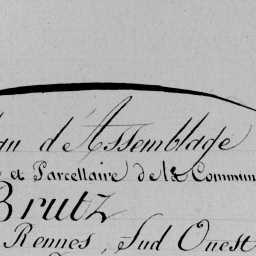 an d'Assemblage
et Parcellaire de la Commun
Brutz
Rennes, Sud Ouest